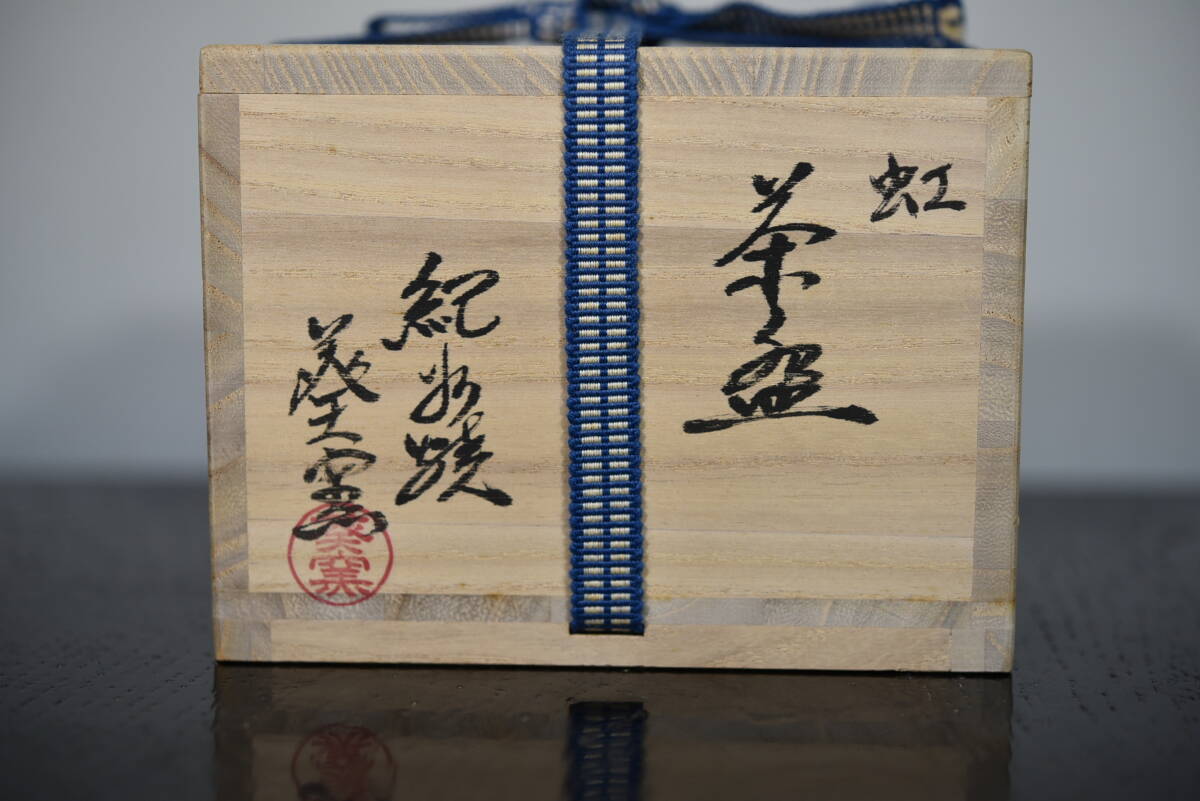 虹
茶盌
紀州焼
葵窯